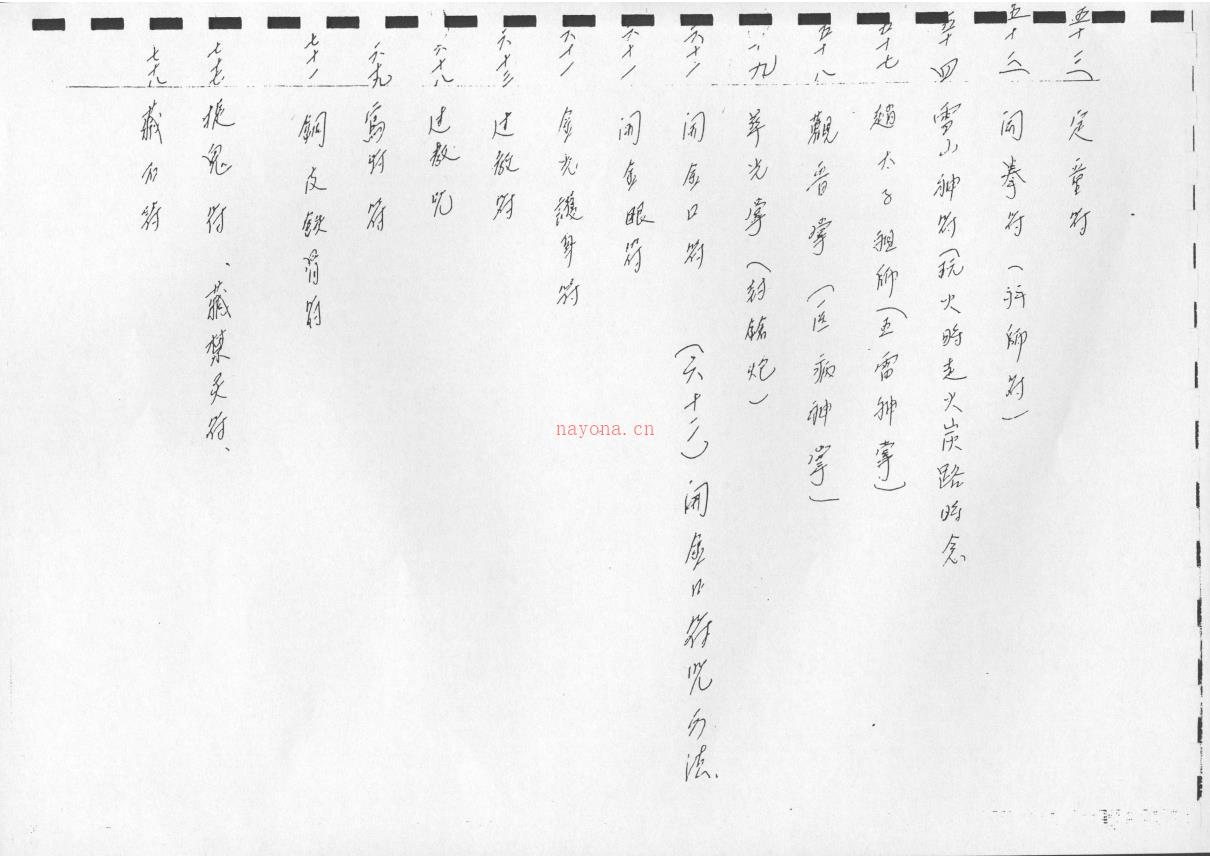 五十三 定童符
五十三 開拳符（拜師符）
五十四 雪山神符（玩火時走火炭路時念
五十七 趙太子祖師（五雷神掌）
五十八 觀音掌（医病神掌）
九 華光掌（封鎗炮）
六十二 開金口符 （六十二）開金口符咒方法、
六十一 開金眼符
六十一 金光護身符
六十三 过教符
六十八 过教咒
六十九 符
七十一 銅皮鉄骨符
七十七 鬼符、藏禁灵符、
七十八 藏 符
nayona.cn